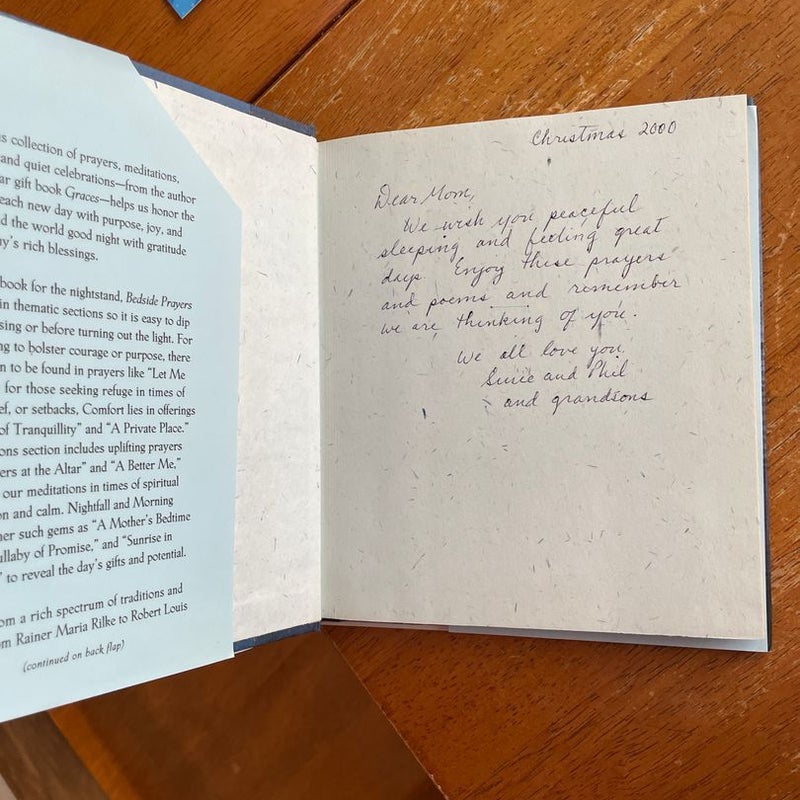 s collection of prayers, meditations,
and quiet celebrations—from the author
ar gift book Graces—helps us honor the
each new day with purpose, joy, and
d the world good night with gratitude
y's rich blessings.
book for the nightstand, Bedside Prayers
in thematic sections so it is easy to dip
sing or before turning out the light. For
ng to bolster courage or purpose, there
n to be found in prayers like “Let Me
for those seeking refuge in times of
ef, or setbacks. Comfort lies in offerings
of Tranquillity” and “A Private Place.”
ons section includes uplifting prayers
ers at the Altar” and “A Better Me,”
our meditations in times of spiritual
on and calm. Nightfall and Morning
her such gems as “A Mother's Bedtime
ullaby of Promise,” and “Sunrise in
” to reveal the day's gifts and potential.
om a rich spectrum of traditions and
om Rainer Maria Rilke to Robert Louis
(continued on back flap)
Christmas 2000
Dear Mom,
We wish you peaceful
sleeping and feeling great
days. Enjoy these prayers
and poems and remember
we are thinking of you.
We all love you,
and Phil
and grandsons